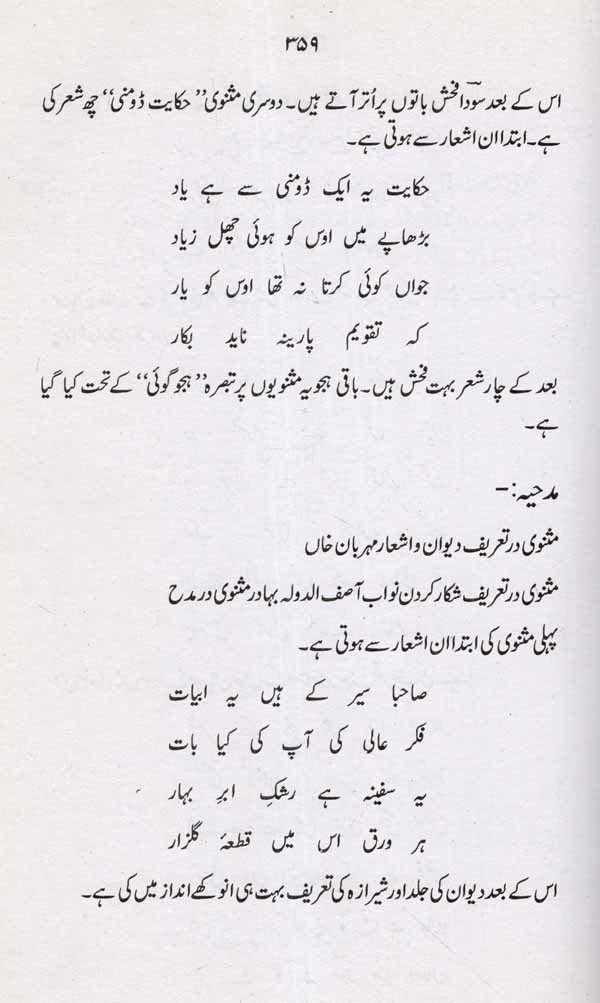 ۳۵۹
اس کے بعد سوداؔ فحش باتوں پر اُتر آتے ہیں۔ دوسری مثنوی ”حکایت ڈومنی“ چھ شعر کی
ہے۔ ابتدا ان اشعار سے ہوتی ہے۔
حکایت یہ ایک ڈومنی سے ہے یاد
بڑھاپے میں اوس کو ہوئی چھل زیاد
جواں کوئی کرتا نہ تھا اوس کو یار
کہ تقویم پارینہ ناید بکار
بعد کے چار شعر بہت فحش ہیں۔ باقی ہجویہ مثنویوں پر تبصرہ ”ہجو گوئی“ کے تحت کیا گیا
ہے۔
مدحیہ:–
مثنوی در تعریف دیوان و اشعار مہربان خاں
مثنوی در تعریف شکار کردن نواب آصف الدولہ بہادر مثنوی در مدح
پہلی مثنوی کی ابتدا ان اشعار سے ہوتی ہے۔
صاحبا سیر کے ہیں یہ ابیات
فکر عالی کی آپ کی کیا بات
یہ سفینہ ہے رشکِ ابرِ بہار
ہر ورق اس میں قطعۂ گلزار
اس کے بعد دیوان کی جلد اور شیرازہ کی تعریف بہت ہی انوکھے انداز میں کی ہے۔